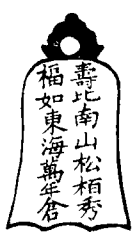 壽比南山松柏秀
福如東海萬年倉